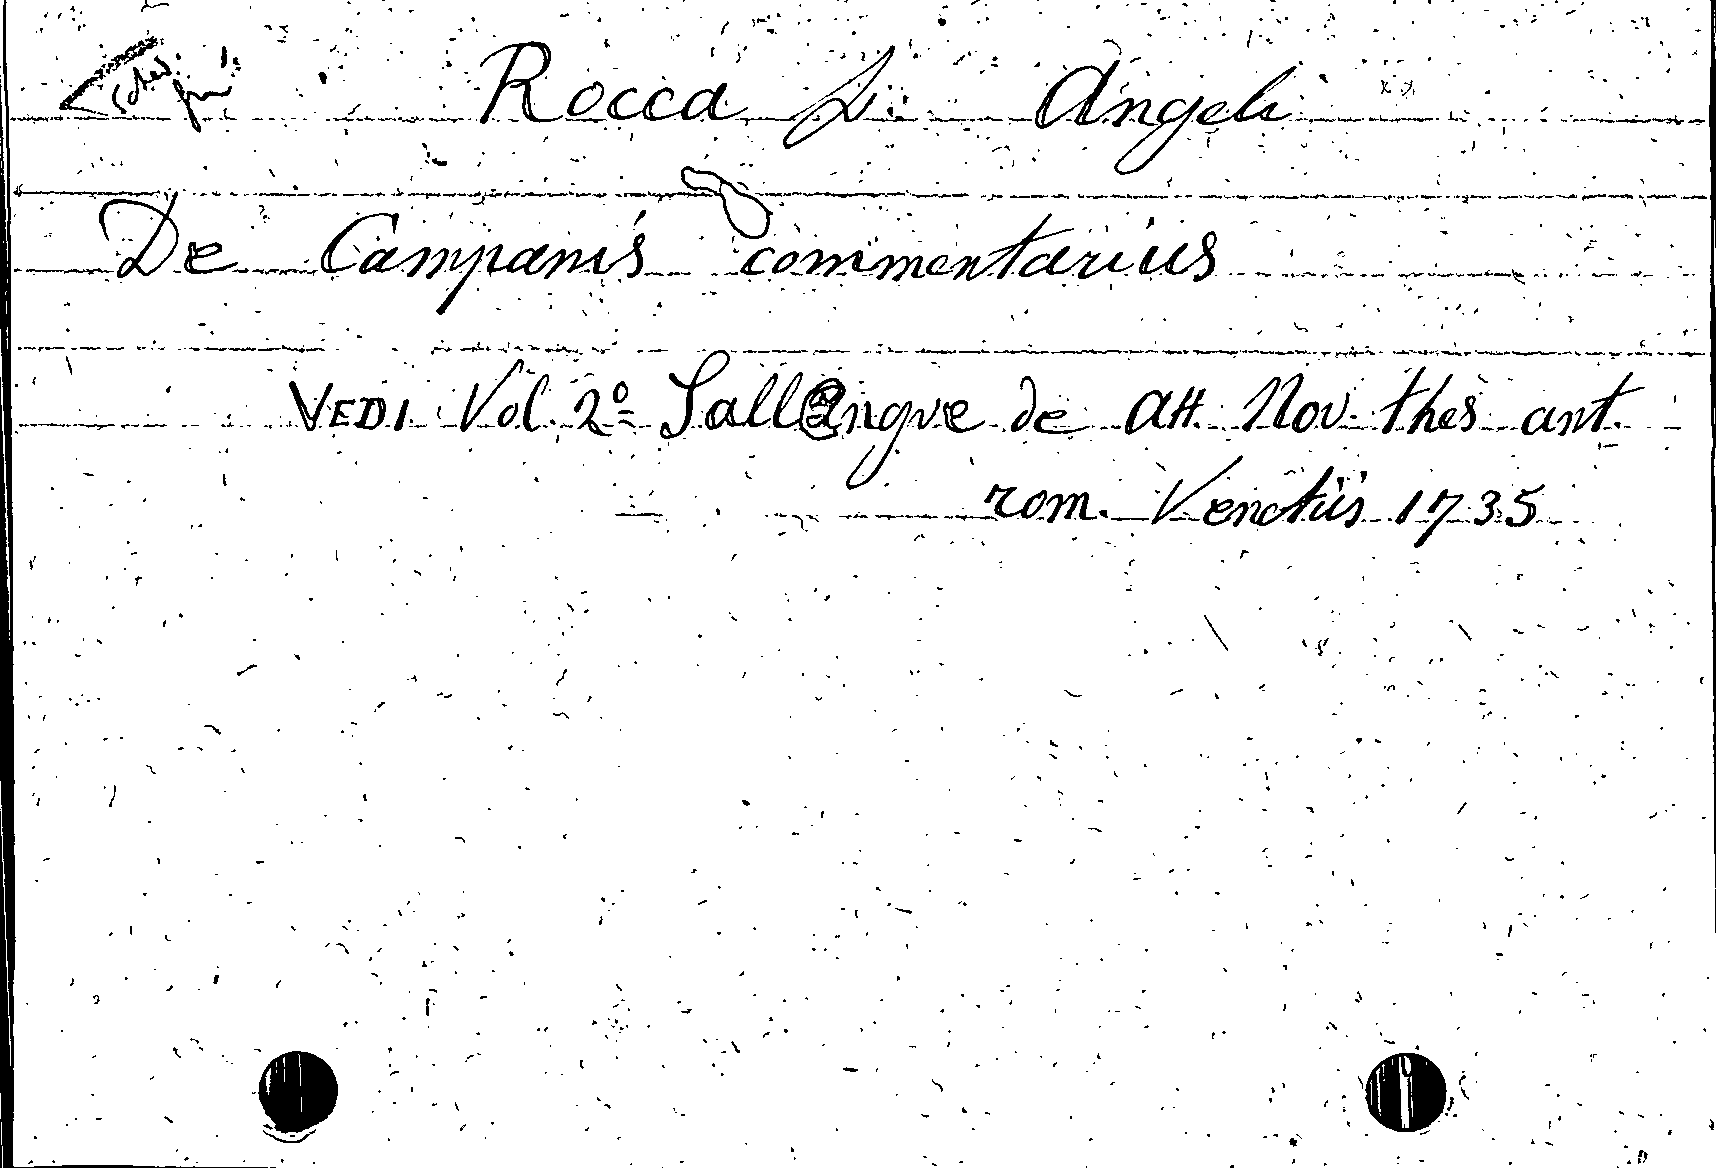 Rocca D. Angeli
De Campanis commentarius
VEDI Vol. 2º Sallengve de att. Nov. thes ant.
rom. Venetiis 1735